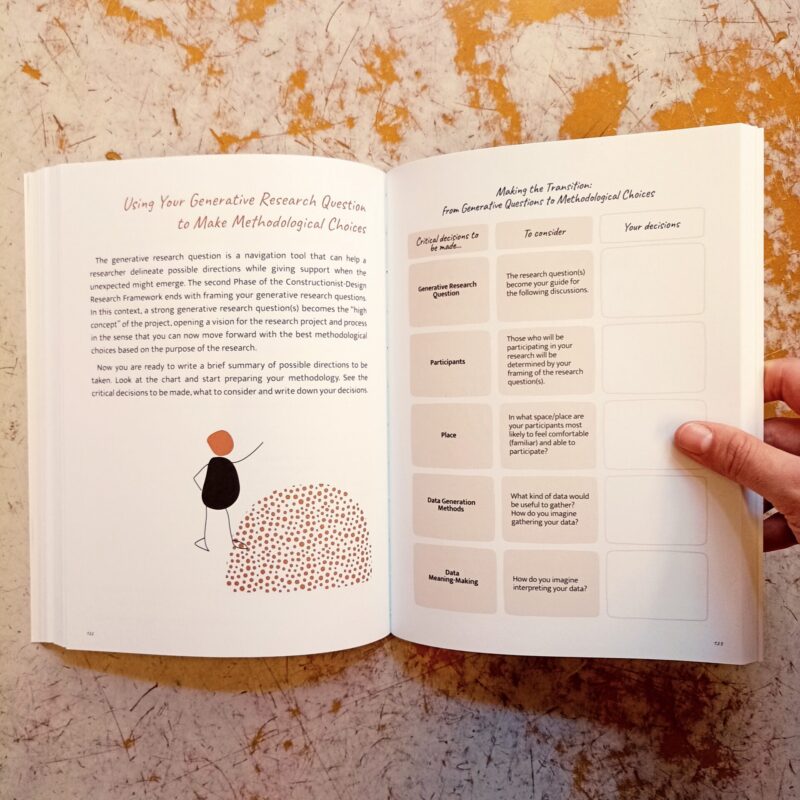 Using Your Generative Research Question
to Make Methodological Choices
The generative research question is a navigation tool that can help a
researcher delineate possible directions while giving support when the
unexpected might emerge. The second Phase of the Constructionist-Design
Research Framework ends with framing your generative research questions.
In this context, a strong generative research question(s) becomes the "high
concept" of the project, opening a vision for the research project and process
in the sense that you can now move forward with the best methodological
choices based on the purpose of the research.
Now you are ready to write a brief summary of possible directions to be
taken. Look at the chart and start preparing your methodology. See the
critical decisions to be made, what to consider and write down your decisions.
122
Making the Transition:
from Generative Questions to Methodological Choices
Critical decisions to
be made...
To consider
Your decisions
Generative Research
Question
The research question(s)
become your guide for
the following discussions.
Participants
Those who will be
participating in your
research will be
determined by your
framing of the research
question(s).
Place
In what space/place are
your participants most
likely to feel comfortable
(familiar) and able to
participate?
Data Generation
Methods
What kind of data would
be useful to gather?
How do you imagine
gathering your data?
Data
Meaning-Making
How do you imagine
interpreting your data?
123